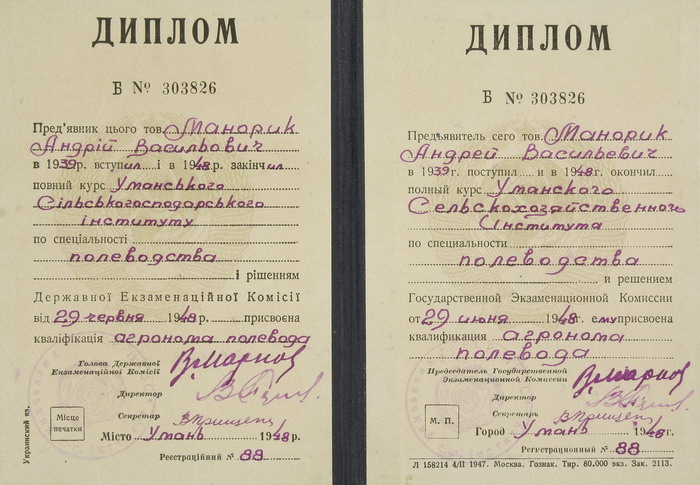 ДИПЛОМ
Б № 303826
Пред'явник цього тов. Манорик
Андрій Васильович
в 1939 р. вступил і в 1948 р. закінчил
повний курс Уманського
Сільськогосподарського
інституту
по спеціальності
полеводства
і рішенням
Державної Екзаменаційної Комісії
від 29 червня 1948 р. присвоена
кваліфікація агронома полевода
Голова Державної
Екзаменаційної Комісії
Директор
Секретар
Місце
печатки
Місто Умань 1948 р.
Реестраційний № 88
Украинский яз.
ДИПЛОМ
Б № 303826
Предъявитель сего тов. Манорик
Андрей Васильевич
в 1939 г. поступил и в 1948 г. окончил
полный курс Уманского
Сельскохозяйственного
Института
по специальности
полеводства
и решением
Государственной Экзаменационной Комиссии
от 29 июня 1948 г. ему присвоена
квалификация агронома
полевода
Председатель Государственной
Экзаменационной Комиссии
Директор
Секретарь
М. П.
Город Умань 1948 г.
Регистрационный № 88
Л 158214 4/II 1947. Москва. Гознак. Тир. 80.000 экз. Зак. 2113.